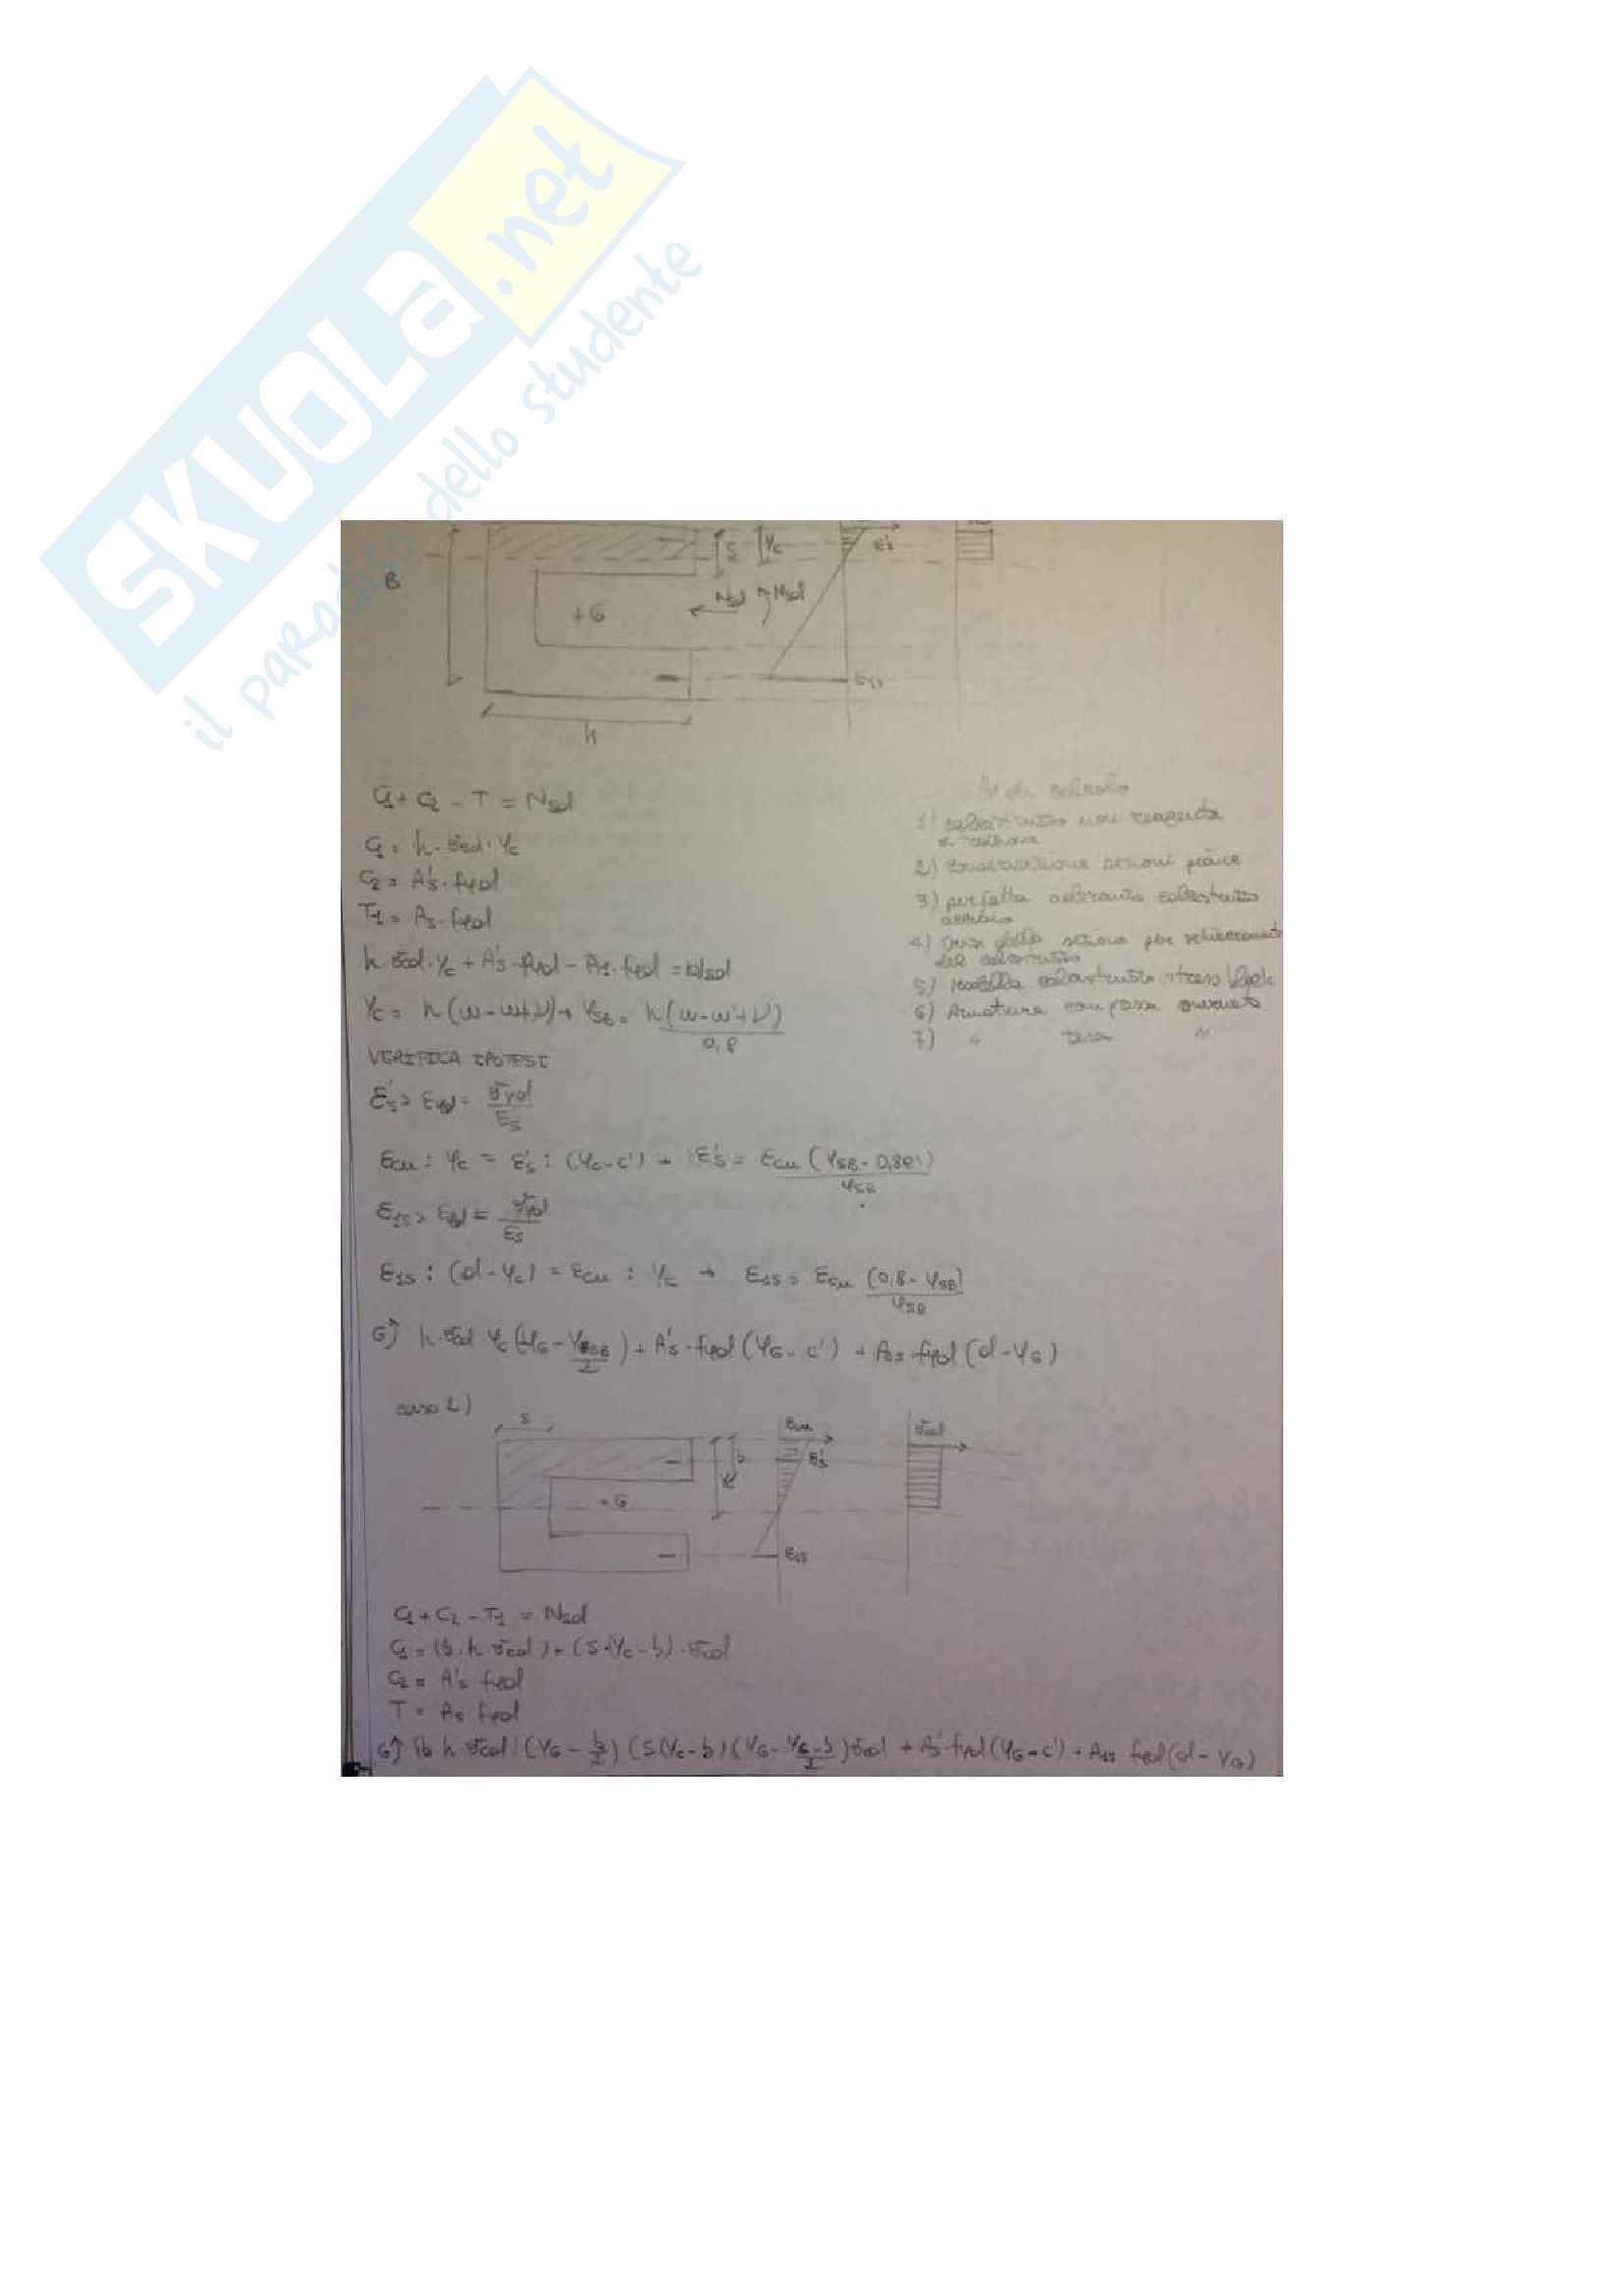 SKUOLA.net
il paradiso dello studente
B
S
Yc
ε's
+G
Nsd
h
C1 + C2 - T = Nsd
C1 = h · σcd · Yc
C2 = A's · fyd
T1 = As · fyd
h σcd · Yc + A's · fyd - A1 · fyd = Nsd
Yc = h (ω - ω' + ν) → YSB = h (ω - ω' + ν) / 0,8
VERIFICA IPOTESI
ε's > εyd = σyd / Es
εcu : Yc = ε's : (Yc - c') → ε's = εcu (YSB - 0,8c') / YSB
ε1s > εyd = σyd / Es
ε1s : (d - Yc) = εcu : Yc → ε1s = εcu (0,8 - YSB) / YSB
1) calcestruzzo non reagente
a trazione
2) conservazione sezioni piane
3) perfetta aderenza calcestruzzo
acciaio
4) crisi della sezione per schiacciamento
del calcestruzzo
5) calcestruzzo stress block
6) Armatura compressa snervata
7) " tesa "
G) h · σcd Yc (YG - YSB / 2) + A's · fyd (YG - c') + A1s · fyd (d - YG)
caso 2)
S
εcu
σcd
b
ε's
+G
ε1s
C1 + C2 - T1 = Nsd
C1 = (b · h σcd) + (S · (Yc - b) · σcd
C2 = A's fyd
T = As fyd
G) (b h σcd) (YG - b / 2) (S (Yc - b) (YG - YG - b / 2) σcd + A's · fyd (YG - c') + A1s · fyd (d - YG)